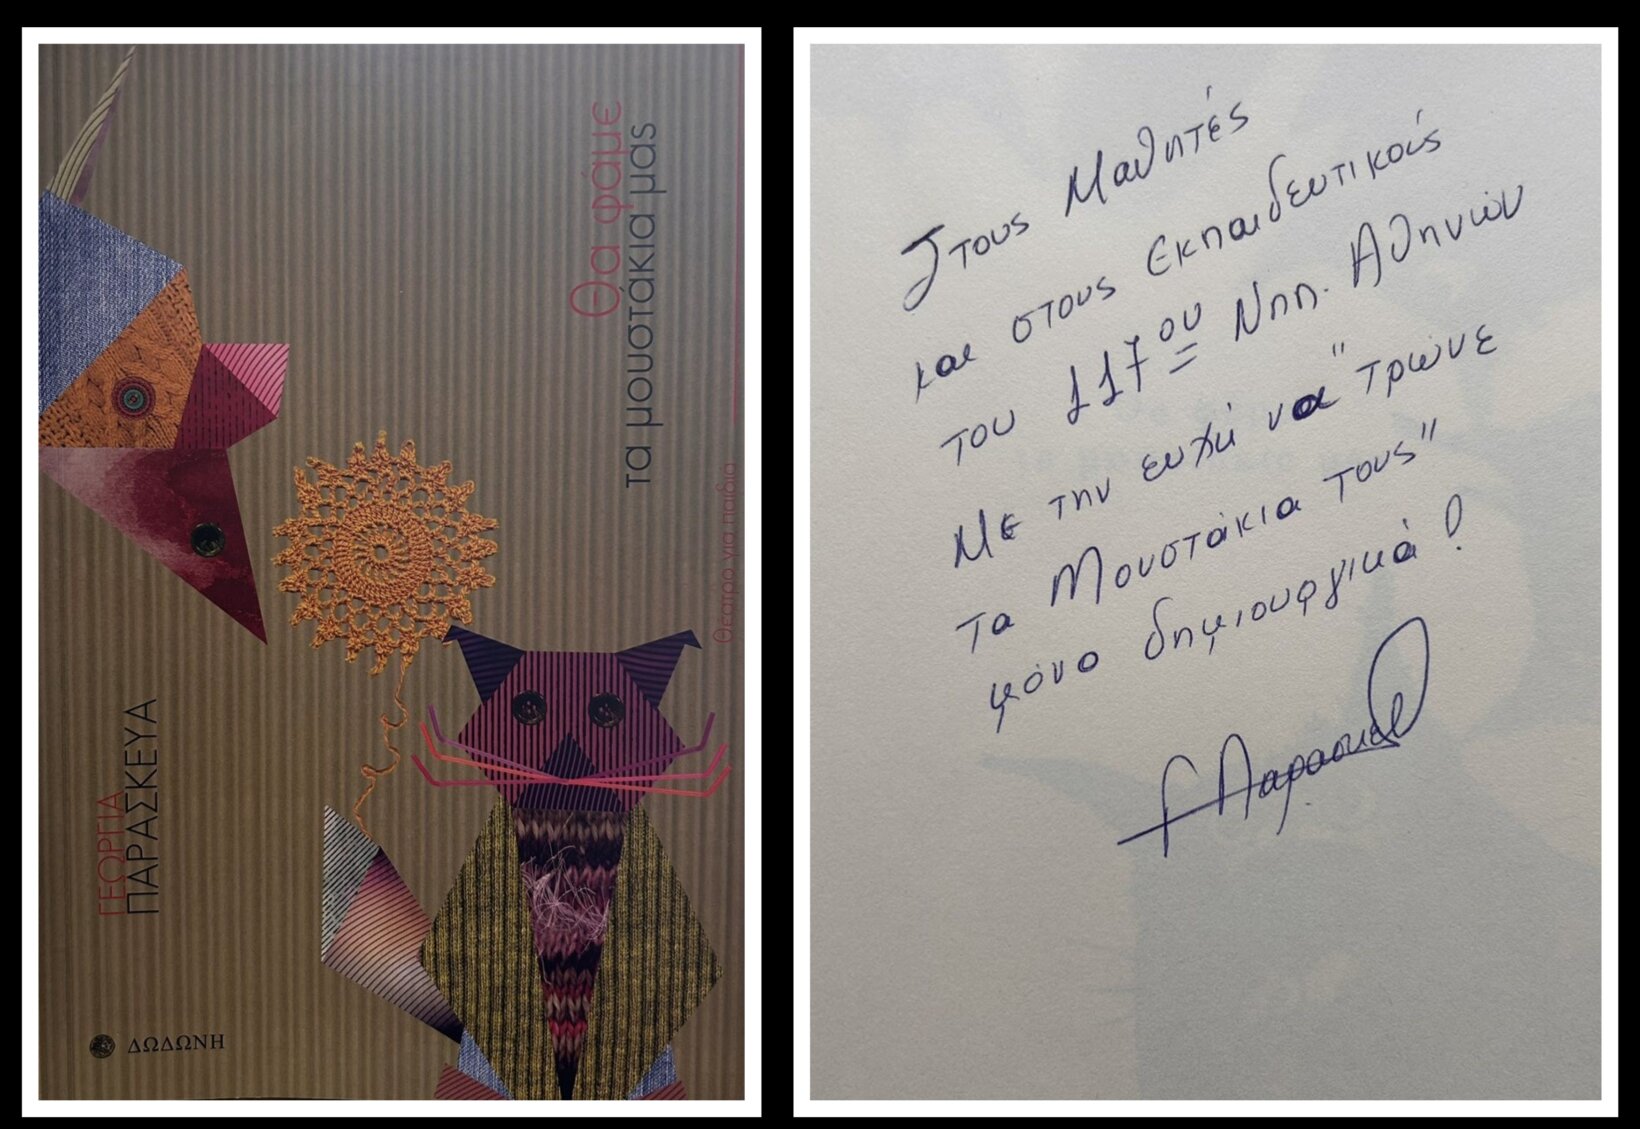 Θα φάμε
τα μουστάκια μας
θέατρο για παιδιά
ΓΕΩΡΓΙΑ
ΠΑΡΑΣΚΕΥΑ
ΔΩΔΩΝΗ
Στους Μαθητές
και στους Εκπαιδευτικούς
του 117ου Νηπ. Αθηνών
Με την ευχή να "τρώνε
τα Μουστάκια τους"
μόνο δημιουργικά!
Γ Παρασκευά